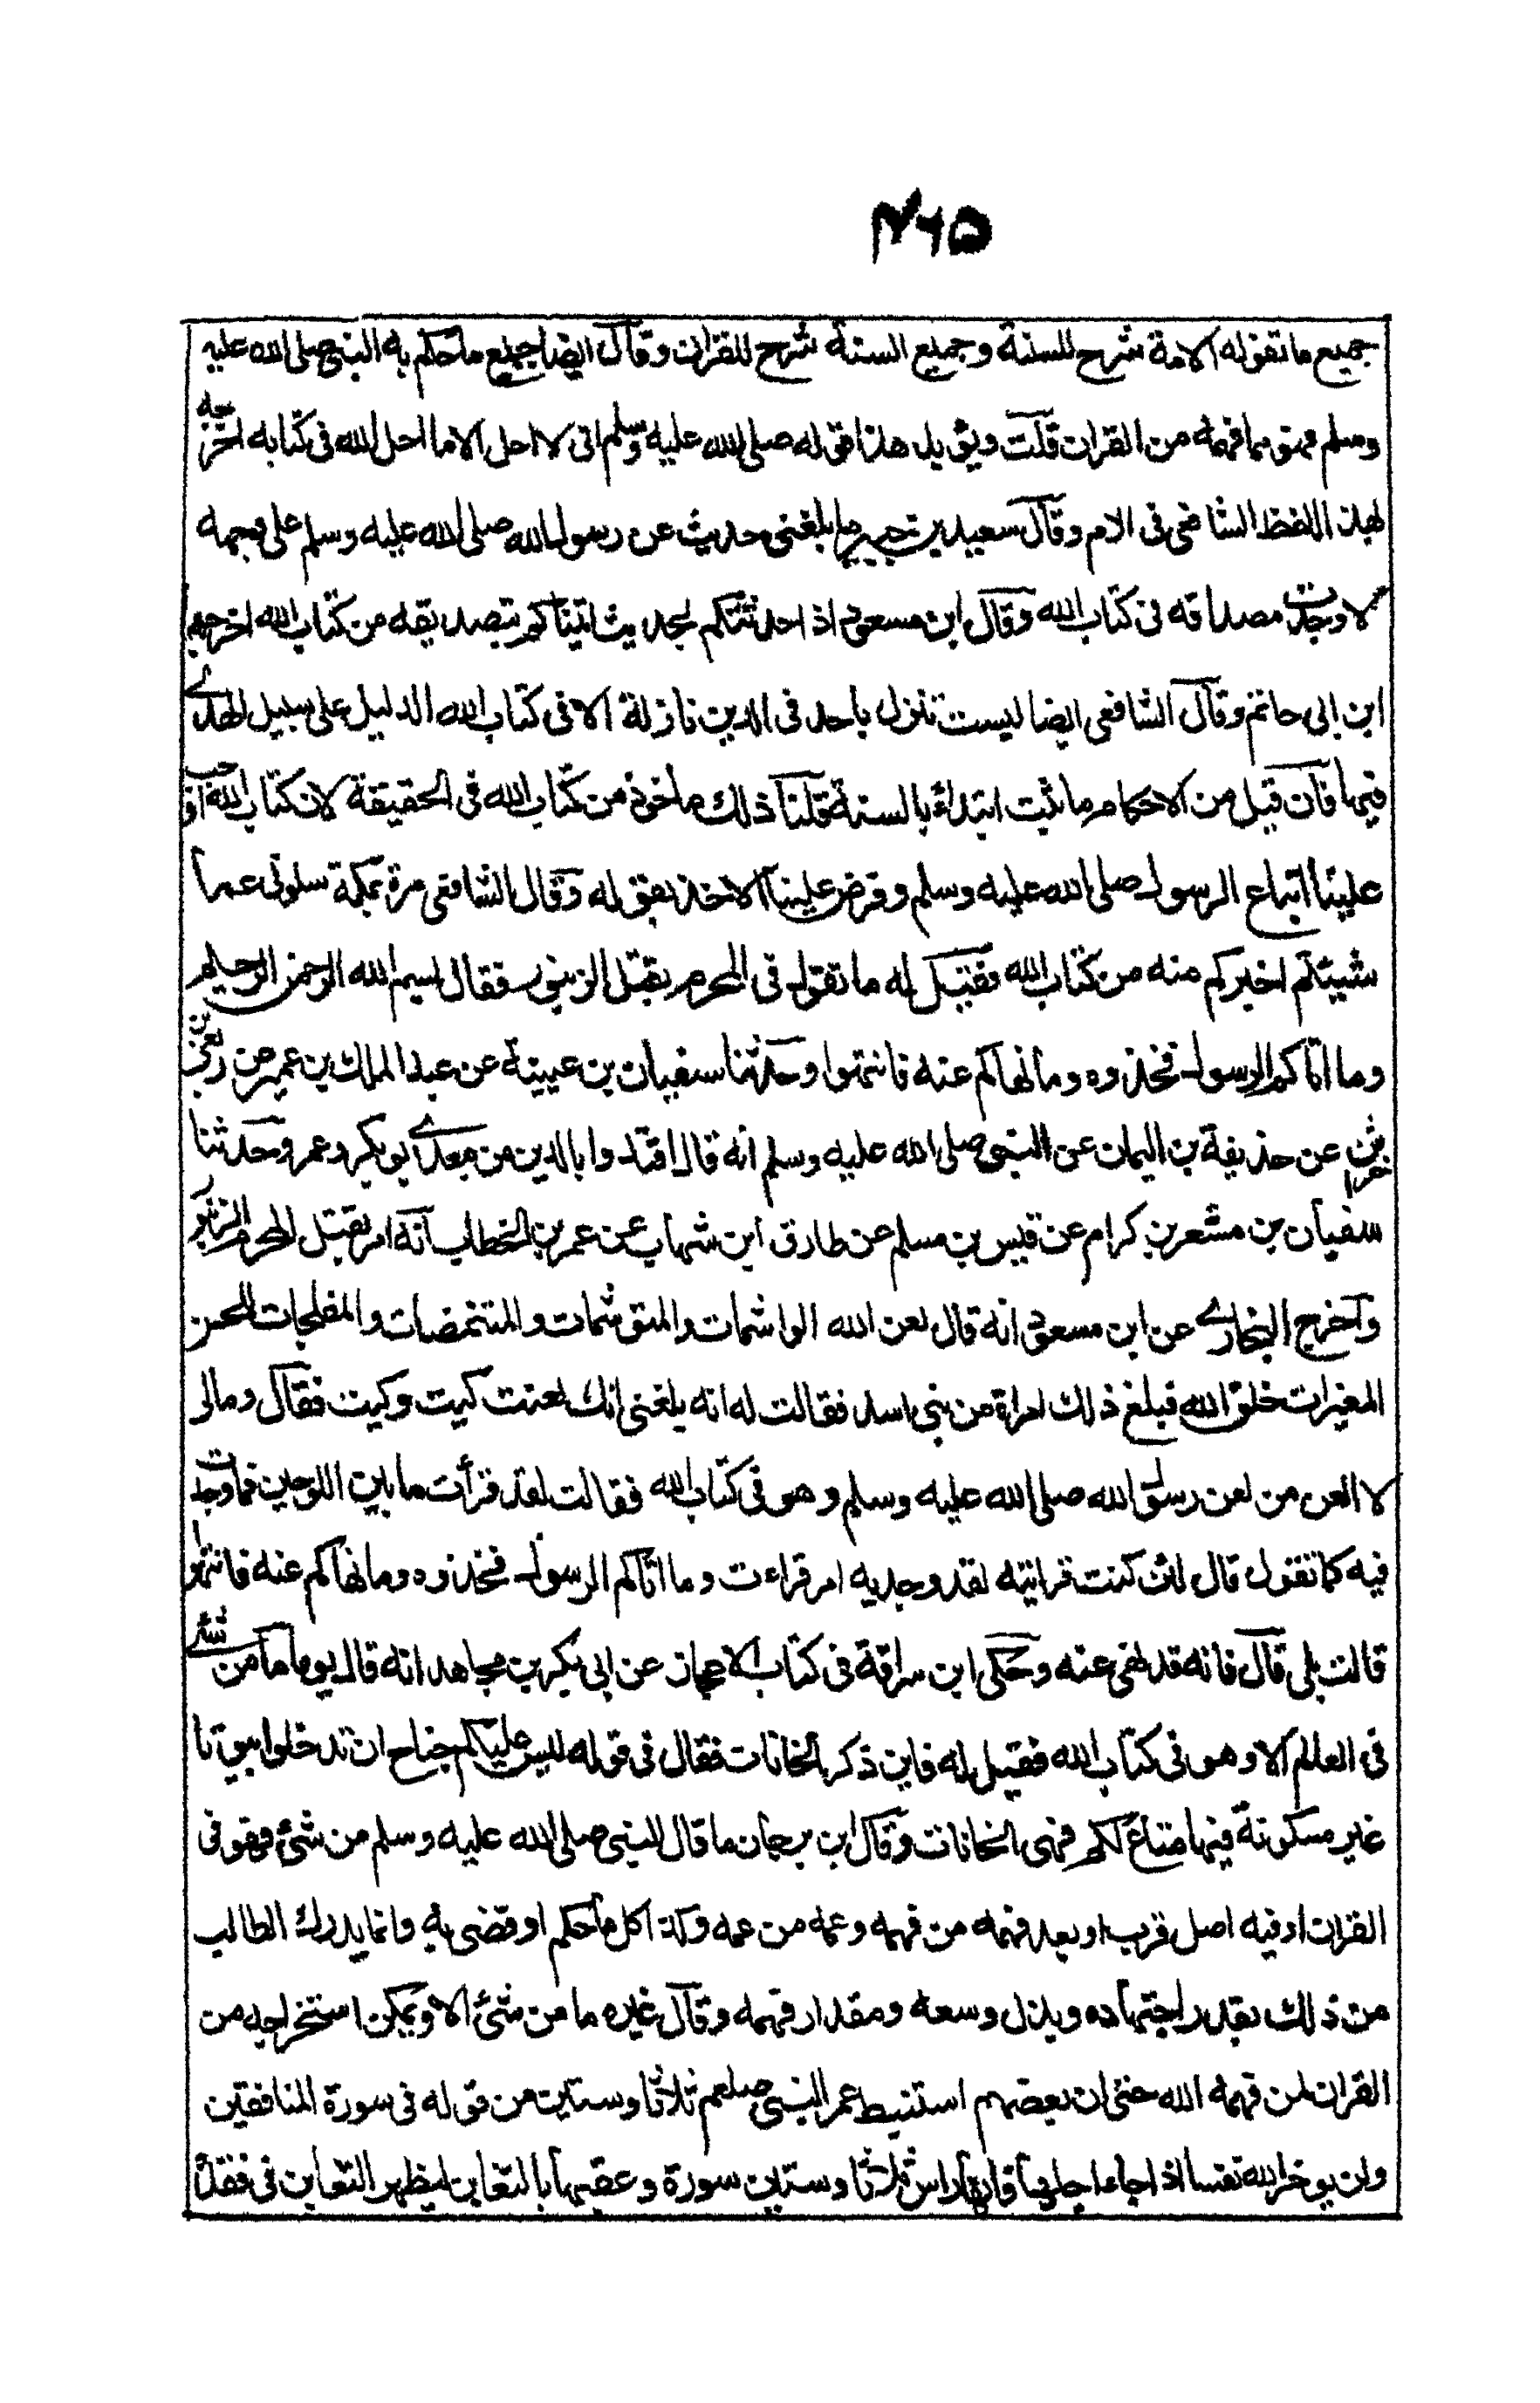 ۴۶۵
جميع ما تقوله الامة شرح للسنة وجميع السنة شرح للقران وقال ايضا جميع ما حكم به النبي صلى الله عليه
وسلم فهو مما فهمه من القران قلت ويؤيد هذا قوله صلى الله عليه وسلم انى لا احل الا ما احل الله فى كتابه اخرجه
بهذا اللفظ الشافعى فى الام وقال سعيد بن جبير ما بلغنى حديث عن رسول الله صلى الله عليه وسلم على وجهه
الا وجدت مصداقه فى كتاب الله وقال ابن مسعود اذا حدثتكم بحديث انبئتاكم بتصديقه من كتاب الله اخرجهم
ابن ابى حاتم وقال الشافعى ايضا ليست تنزل باحد فى الدين نازلة الا فى كتاب الله الدليل على سبيل الهدے
فيها فان قيل من الاحكام ما ثبت ابتداء بالسنة قلنا ذلك ماخوذ من كتاب الله فى الحقيقة لان كتاب الله اوجب
علينا اتباع الرسول صلى الله عليه وسلم وفرض علينا الاخذ بقوله وقال الشافعى مرة بمكة سلونى عما
شيئتم اخبركم منه من كتاب الله فقيل له ما تقول فى المحرم يقتل الزنبور فقال بسم الله الرحمن الرحيم
وما اتاكم الرسول فخذوه وما نهاكم عنه فانتهوا وحدثنا سفيان بن عيينة عن عبد الملك بن عمير عن ربعى بن
حراش عن حذيفة بن اليمان عن النبى صلى الله عليه وسلم انه قال اقتدوا بالذين من بعدے بو بكر وعمر وحدثنا
سفيان بن مشعر بن كرام عن قيس بن مسلم عن طارق ابن شهاب عن عمر بن الخطاب انه امر بقتل المحرم الزنبور
واخرج البخارے عن ابن مسعود انه قال لعن الله الواشمات والمتوشمات والمتنمضات والمفلجات للحسن
المغيرات خلق الله فبلغ ذلك امراة من بنى اسد فقالت له انه بلغنى انك لعنت كيت وكيت فقال ومالى
لا العن من لعن رسول الله صلى الله عليه وسلم وهو فى كتاب الله فقالت لقد قرأت ما بين اللوحين فما وجدت
فيه كما تقول قال لئن كنت قراتيه لقد وجديه امر قراءت وما اتاكم الرسول فخذوه وما نهاكم عنه فانتهوا
قالت بلى قال فانه قد نهى عنه وحكى ابن سراقة فى كتاب الاعجاز عن ابى بكر بن مجاهد انه قال يوما ما من شئ
فى العالم الا وهو فى كتاب الله فقيل له فاين ذكر الخانات فقال فى قوله ليس عليكم جناح ان تدخلوا بيوتا
غير مسكونة فيها متاع لكم فهى الخانات وقال ابن برجان ما قال النبى صلى الله عليه وسلم من شئ فهو فى
القران او فيه اصل قرب او بعد فهمه من فهمه وعمه من عمه وكذا كل ما حكم او قضى به وانما يدرك الطالب
من ذلك بقدر اجتهاده وبذل وسعه ومقدار فهمه وقال غيره ما من شئ الا ويمكن استخراجه من
القران لمن فهمه الله حتى ان بعضهم استنبط عمر النبى صلعم ثلاثا وستين من قوله فى سورة المنافقين
ولن يوخر الله نفسا اذا جاء اجلها فانها راس ثلاثا وستين سورة وعقبها بالتغابن ليظهر التغابن فى فقدا